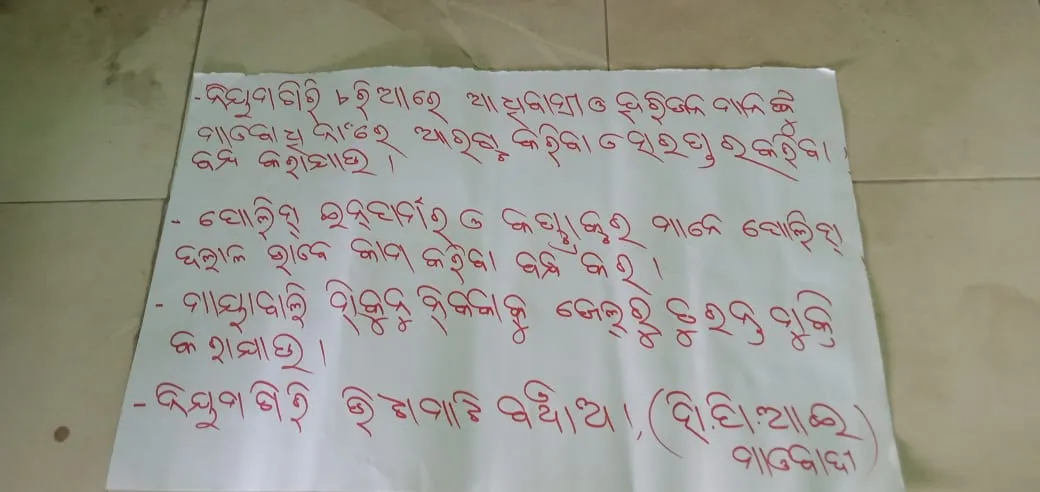 - ନିୟମଗିରି ଏରିଆରେ ଆଧିବାସୀ ଓ ହରିଜନ ମାନଙ୍କୁ
ମାଓବାଧି ନାଁରେ ଆରଷ୍ଟ କରିବା ଓ ହଇରାଣ କରିବା
ବନ୍ଦ କରାଯାଉ ।
- ପୋଲିସ୍ ଇନ୍‌ଫର୍ମର ଓ କଣ୍ଟ୍ରାକ୍ଟର ମାନେ ପୋଲିସ୍
ଦଲାଲ ଭାବେ କାମ କରିବା ବନ୍ଦ କର ।
- ମାୟାବାଲି ସିକୁନୁ ସିକକାକୁ ଜେଲ୍‌ରୁ ତୁରନ୍ତ ମୁକ୍ତି
କରାଯାଉ ।
- ନିୟମଗିରି ଭିଟାମାଟି ବଞ୍ଚାଅ ।, (ସି.ପି.ଆଇ
ମାଓବାଦୀ)